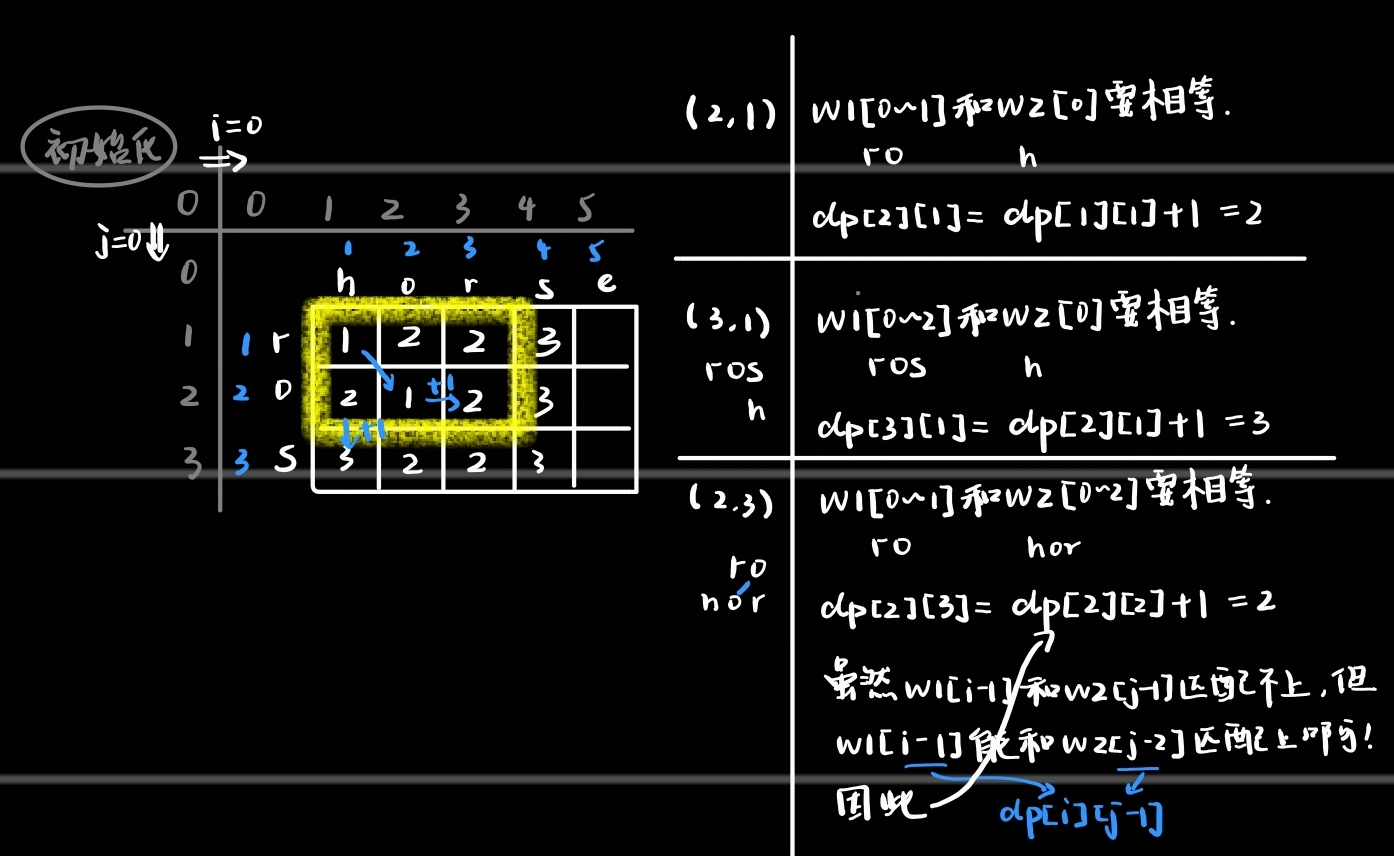 初始化
i=0
0 0 1 2 3 4 5
j=0
1 2 3 4 5
0
h o r s e
1 1 r 1 2 2 3
2 2 o 2 1 +1 2 3
+1
3 3 s 3 2 2 3
(2,1)
w1[0~1]和w2[0]要相等.
ro h
dp[2][1]= dp[1][1]+1 =2
(3,1)
ros
h
w1[0~2]和w2[0]要相等.
ros h
dp[3][1]= dp[2][1]+1 =3
(2.3)
ro
hor
w1[0~1]和w2[0~2]要相等.
ro hor
dp[2][3]= dp[2][2]+1 =2
虽然w1[i-1]和w2[j-1]匹配不上,但
w1[i-1]能和w2[j-2]匹配上啊!
因此
dp[i][j-1]